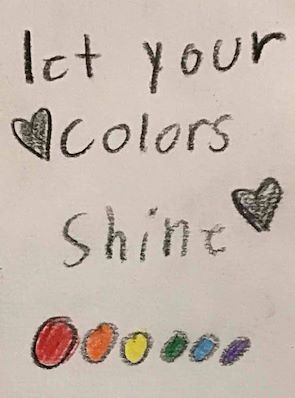 let your
colors
Shine